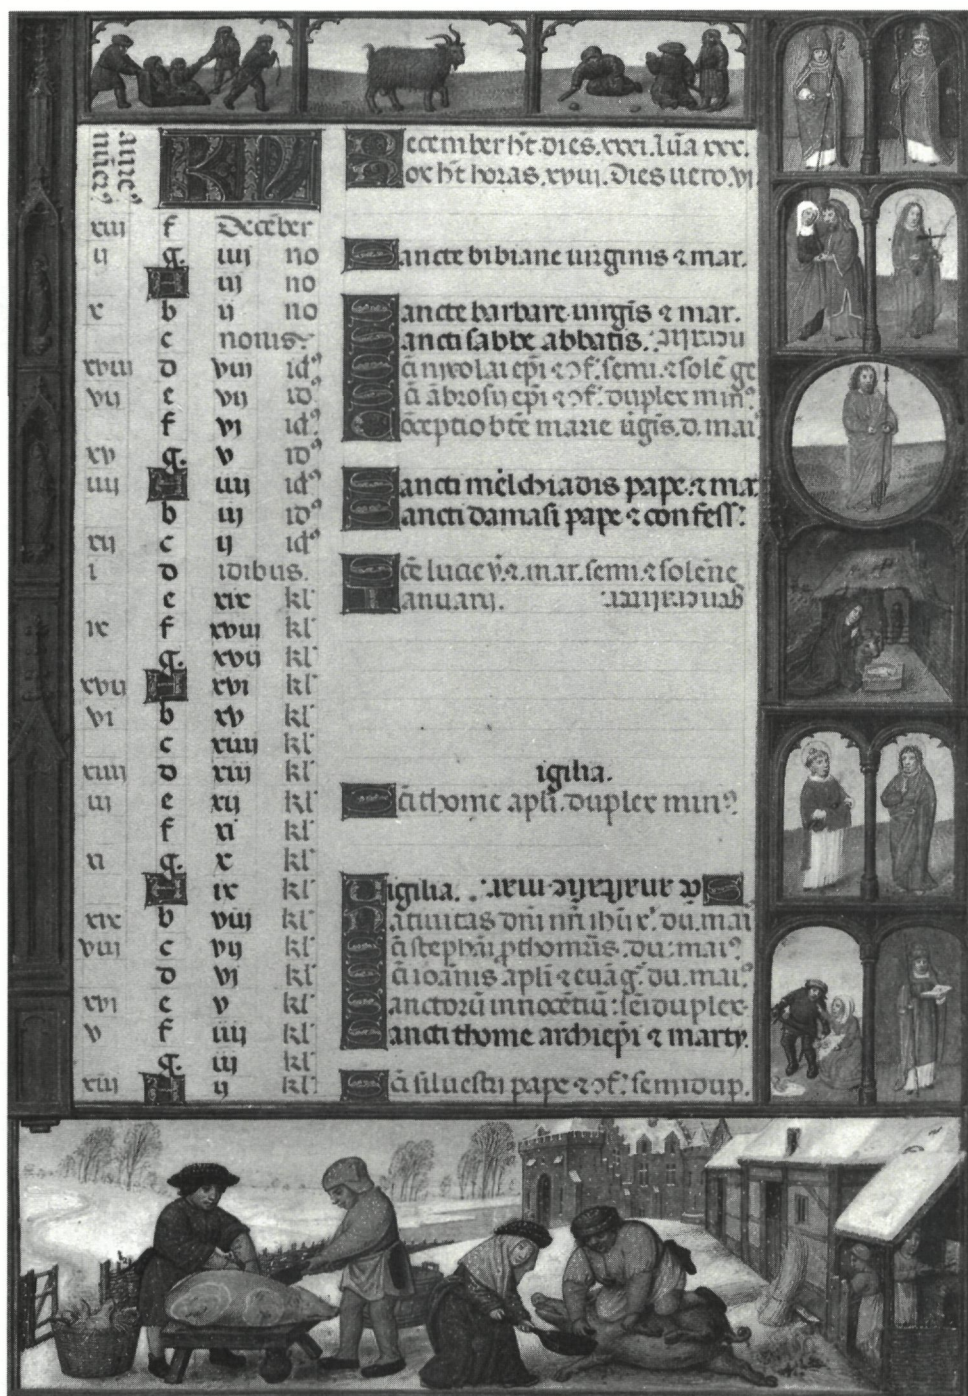 KL
ecember ht. dies. xxxi. lūa xxx.
ox ht horas. xviii. Dies uero. vi
xiii f Decēber
ii g. iiij no Sancte bibiane uirginis ⁊ mar.
A iij no
x b ij no Sancte barbare uirgīs ⁊ mar.
c nonis. Sancti sabbe abbatis.
xviii d viij idꝰ Sc̄i nycolai ep̄i ⁊ ↄf. semi. ⁊ solē ge
vij e vij id Sc̄i ābrosij ep̄i ⁊ ↄf. duplex minꝰ.
f vi idꝰ. Cōceptio bt̄e marie ūgīs. d. mai.
xv g. v idꝰ
iiij A iiij idꝰ Sancti melchiadis pape. ⁊ mar
b iij idꝰ Sancti damasi pape ⁊ confess.
xij c ij idꝰ
i d idibus. Sc̄e lucie v̄. ⁊. mar. semi. ⁊ solēne
e xix kl' Ianuarij.
ix f xviij kl'
g. xvij kl'
xvij A xvi kl'
vi b xv kl'
c xiiij kl'
xiiij d xiij kl' igilia.
iij e xij kl' Sc̄i thome apl̄i. duplex minꝰ.
f xi kl'
xi g. x kl'
A ix kl' Vigilia.
xix b viij kl' Natiuitas dn̄i nr̄i ihū x̄. du. mai
viij c vij kl' Sc̄i stephāi ꝓthomr̄is. du. maiꝰ.
d vj kl' Sc̄i ioānis apl̄i ⁊ euāg. du. maiꝰ.
xvi e v kl' Sanctorū innocētiū. sēiduplex.
v f iiij kl' Sancti thome archiep̄i ⁊ marty.
g. iij kl'
xiij A ij kl' Sc̄i siluestri pape ⁊ ↄf. semidup.